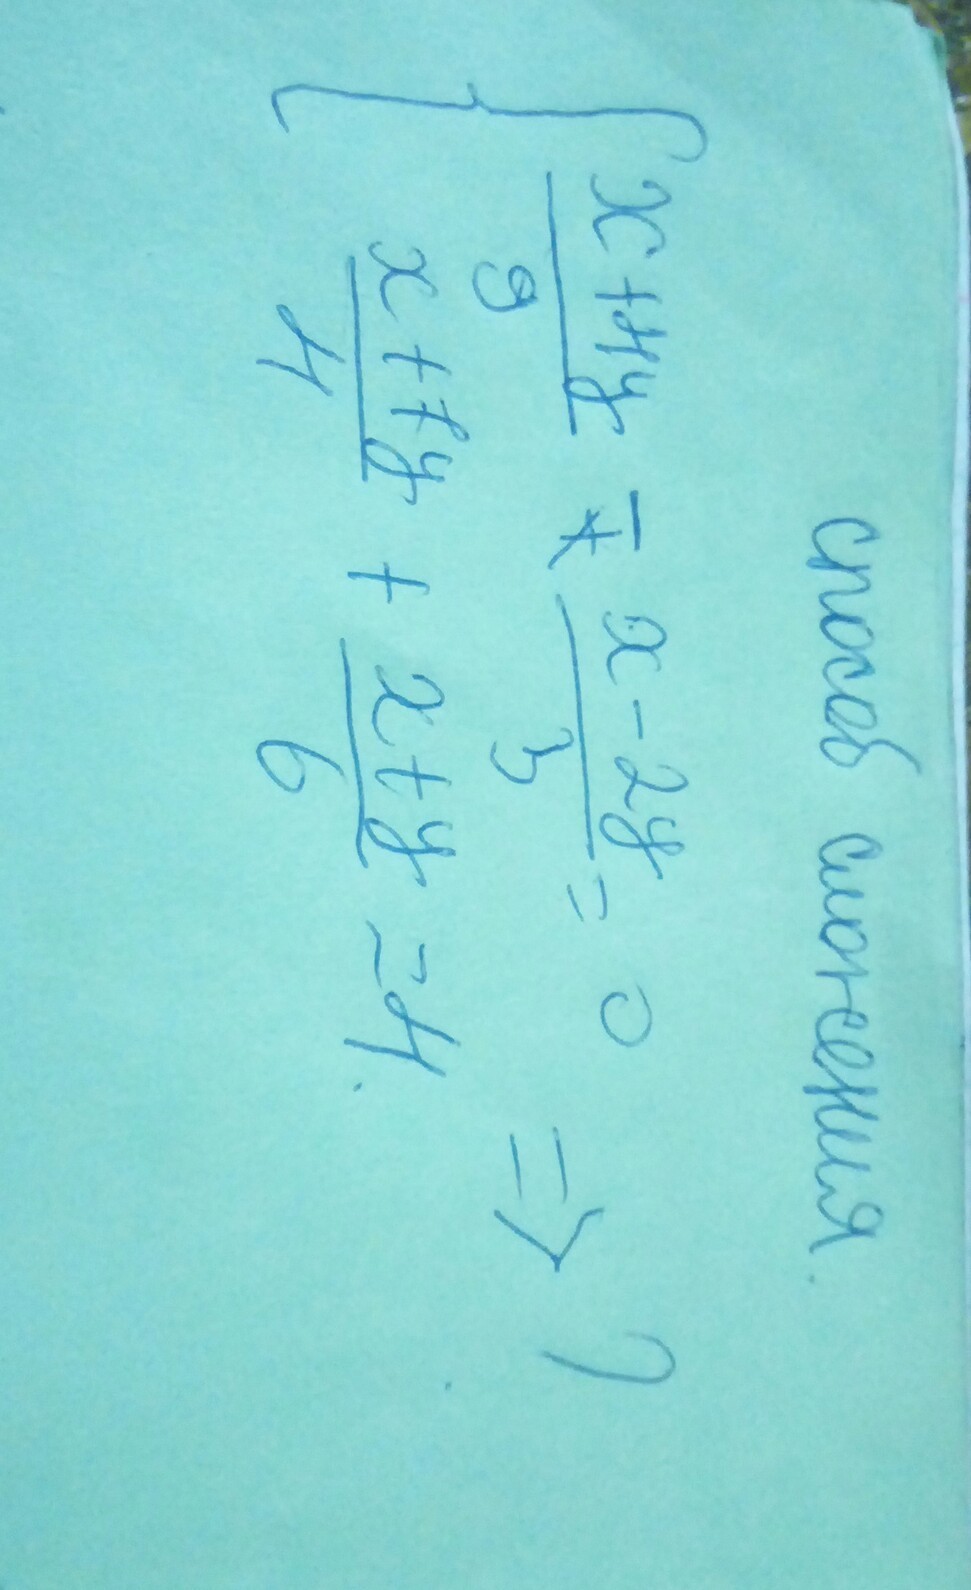 способ сложения.
{ (x+4y)/9 - (x-2y)/3 = 0
(x+7y)/4 + (x+y)/6 = 4. ⇒